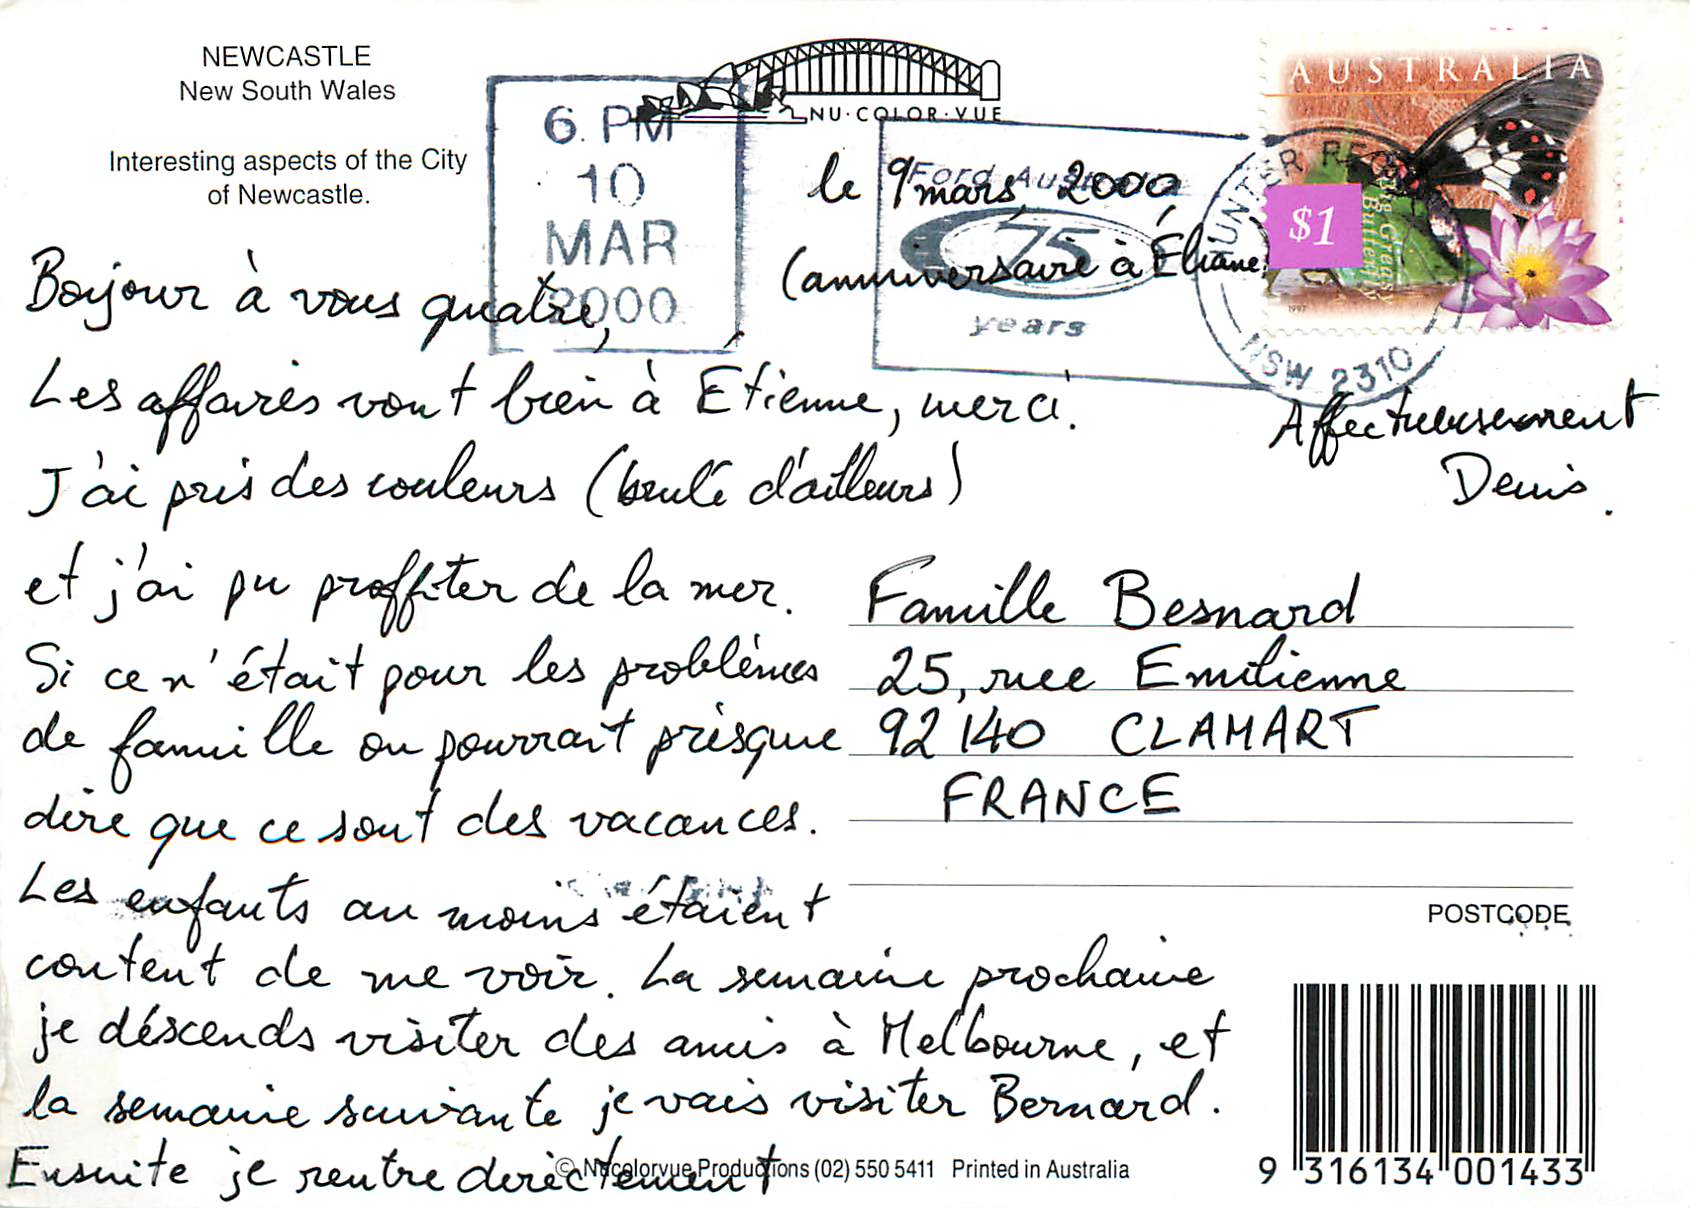 NEWCASTLE
New South Wales
Interesting aspects of the City
of Newcastle.
6. PM
10
MAR
2000
NU·COLOR·VUE
Ford Australia
75
years
AUSTRALIA
$1
Big Greasy
Butterfly
1997
HUNTER REGION
NSW 2310
le 9 mars 2000
(anniversaire à Éliane)
Bonjour à vous quatre,
Les affaires vont bien à Étienne, merci.
J'ai pris des couleurs (brulé d'ailleurs)
et j'ai pu proffiter de la mer.
Si ce n'était pour les problèmes
de famille on pourrait presque
dire que ce sont des vacances.
Les enfants au moins étaient
content de me voir. La semaine prochaine
je déscends visiter des amis à Melbourne, et
la semaine suivante je vais visiter Bernard.
Ensuite je rentre directement
Affectueusement
Denis.
Famille Besnard
25, rue Emilienne
92140 CLAMART
FRANCE
POSTCODE
© Nucolorvue Productions (02) 550 5411 Printed in Australia
9 316134 001433